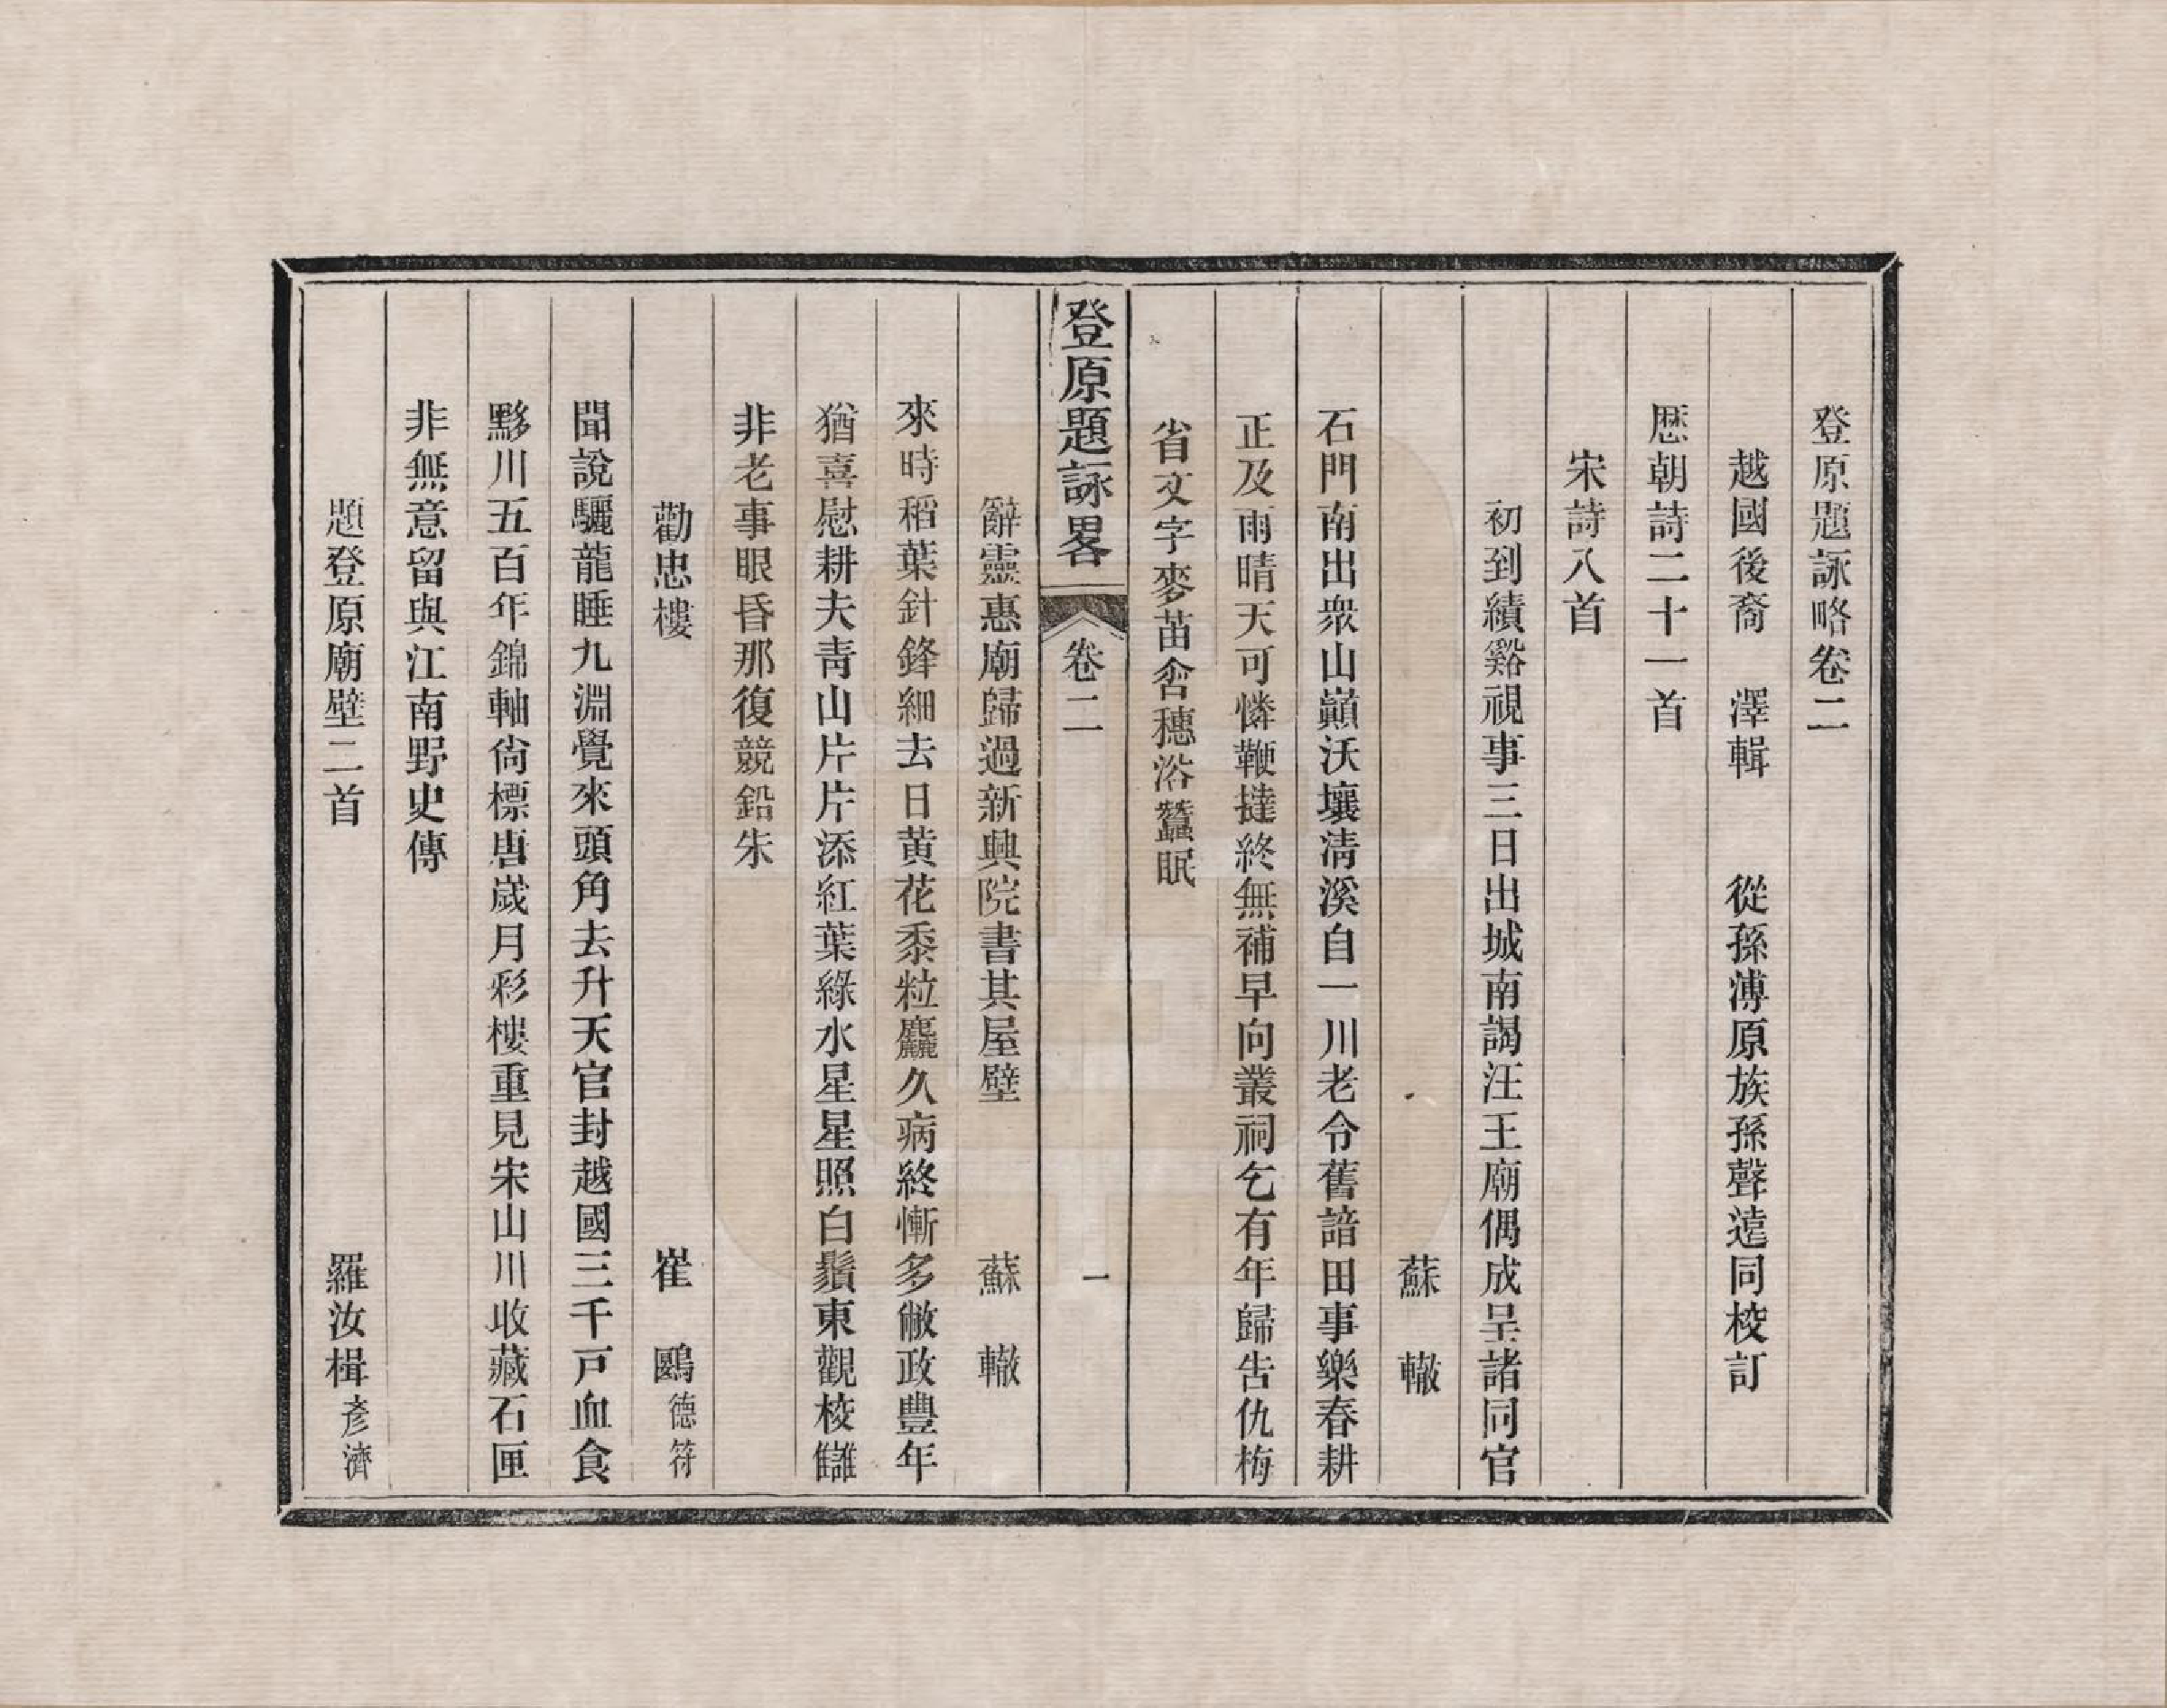 登原題詠略卷二
越國後裔　澤輯　從孫溥原族孫聲遠同校訂
歷朝詩二十一首
宋詩八首
初到績谿視事三日出城南謁汪王廟偶成呈諸同官
蘇　轍
石門南出衆山巔沃壤清溪自一川老令舊諳田事樂春耕
正及雨晴天可憐鞭撻終無補早向叢祠乞有年歸告仇梅
省文字麥苗含穗浴蠶眠
登原題詠畧　卷二　一
辭靈惠廟歸過新興院書其屋壁　蘇　轍
來時稻葉針鋒細去日黄花黍粒麤久病終慚多敝政豐年
猶喜慰耕夫青山片片添紅葉綠水星星照白鬚東觀校讎
非老事眼昏那復競鉛朱
勸忠樓　崔　鷗德符
聞說驪龍睡九淵覺來頭角去升天官封越國三千戸血食
黟川五百年錦軸尙標唐歲月彩樓重見宋山川收藏石匣
非無意留與江南野史傳
題登原廟壁二首　羅汝楫彥濟